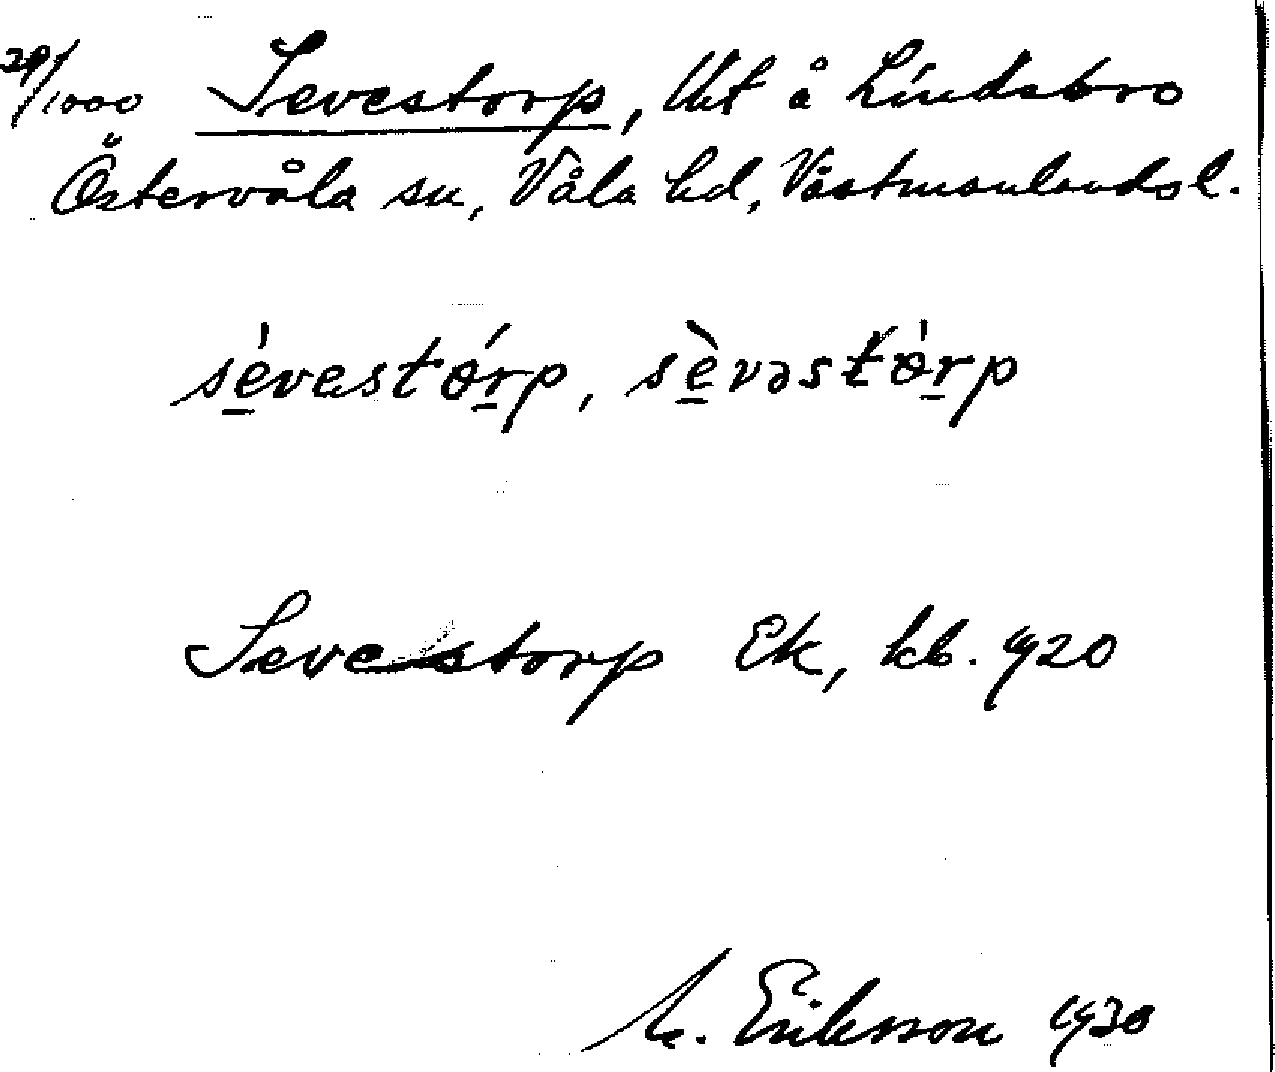 29/1000 Sevestorp, lht å Lindsbro
Östervåla sn, Våla hd, Västmanlands l.
sévestórp, sèvəstòrp
Sevestorp Ek, kb. 1920
M. Eriksson 1930